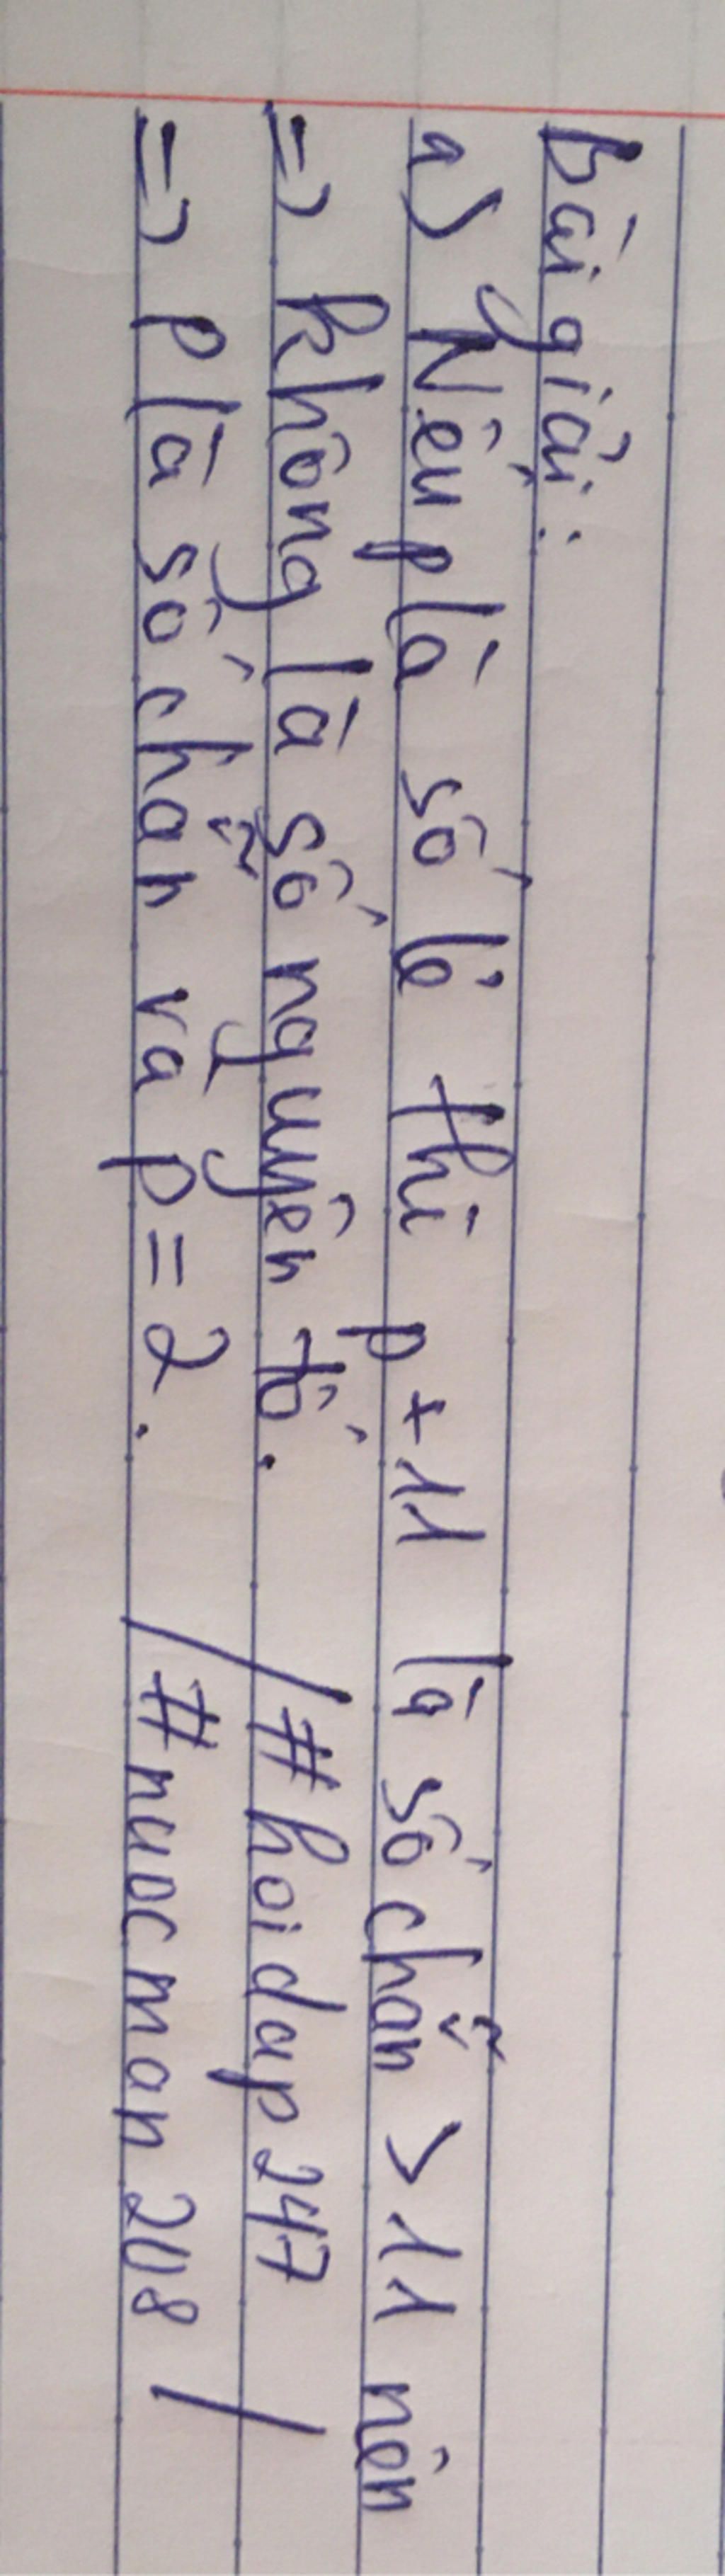 Bài giải:
a) Nếu p là số lẻ thì p + 11 là số chẵn > 11 nên
=> không là số nguyên tố.
=> p là số chẵn và p = 2.
/#hoidap247
#nuocman208/